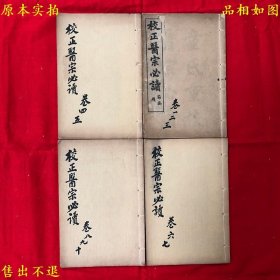 原本实拍
品相如图
校正醫宗必讀
卷四五
校正醫宗必讀
卷一二三
校正醫宗必讀
卷八九十
校正醫宗必讀
卷六七
售出不退
违者勿拍